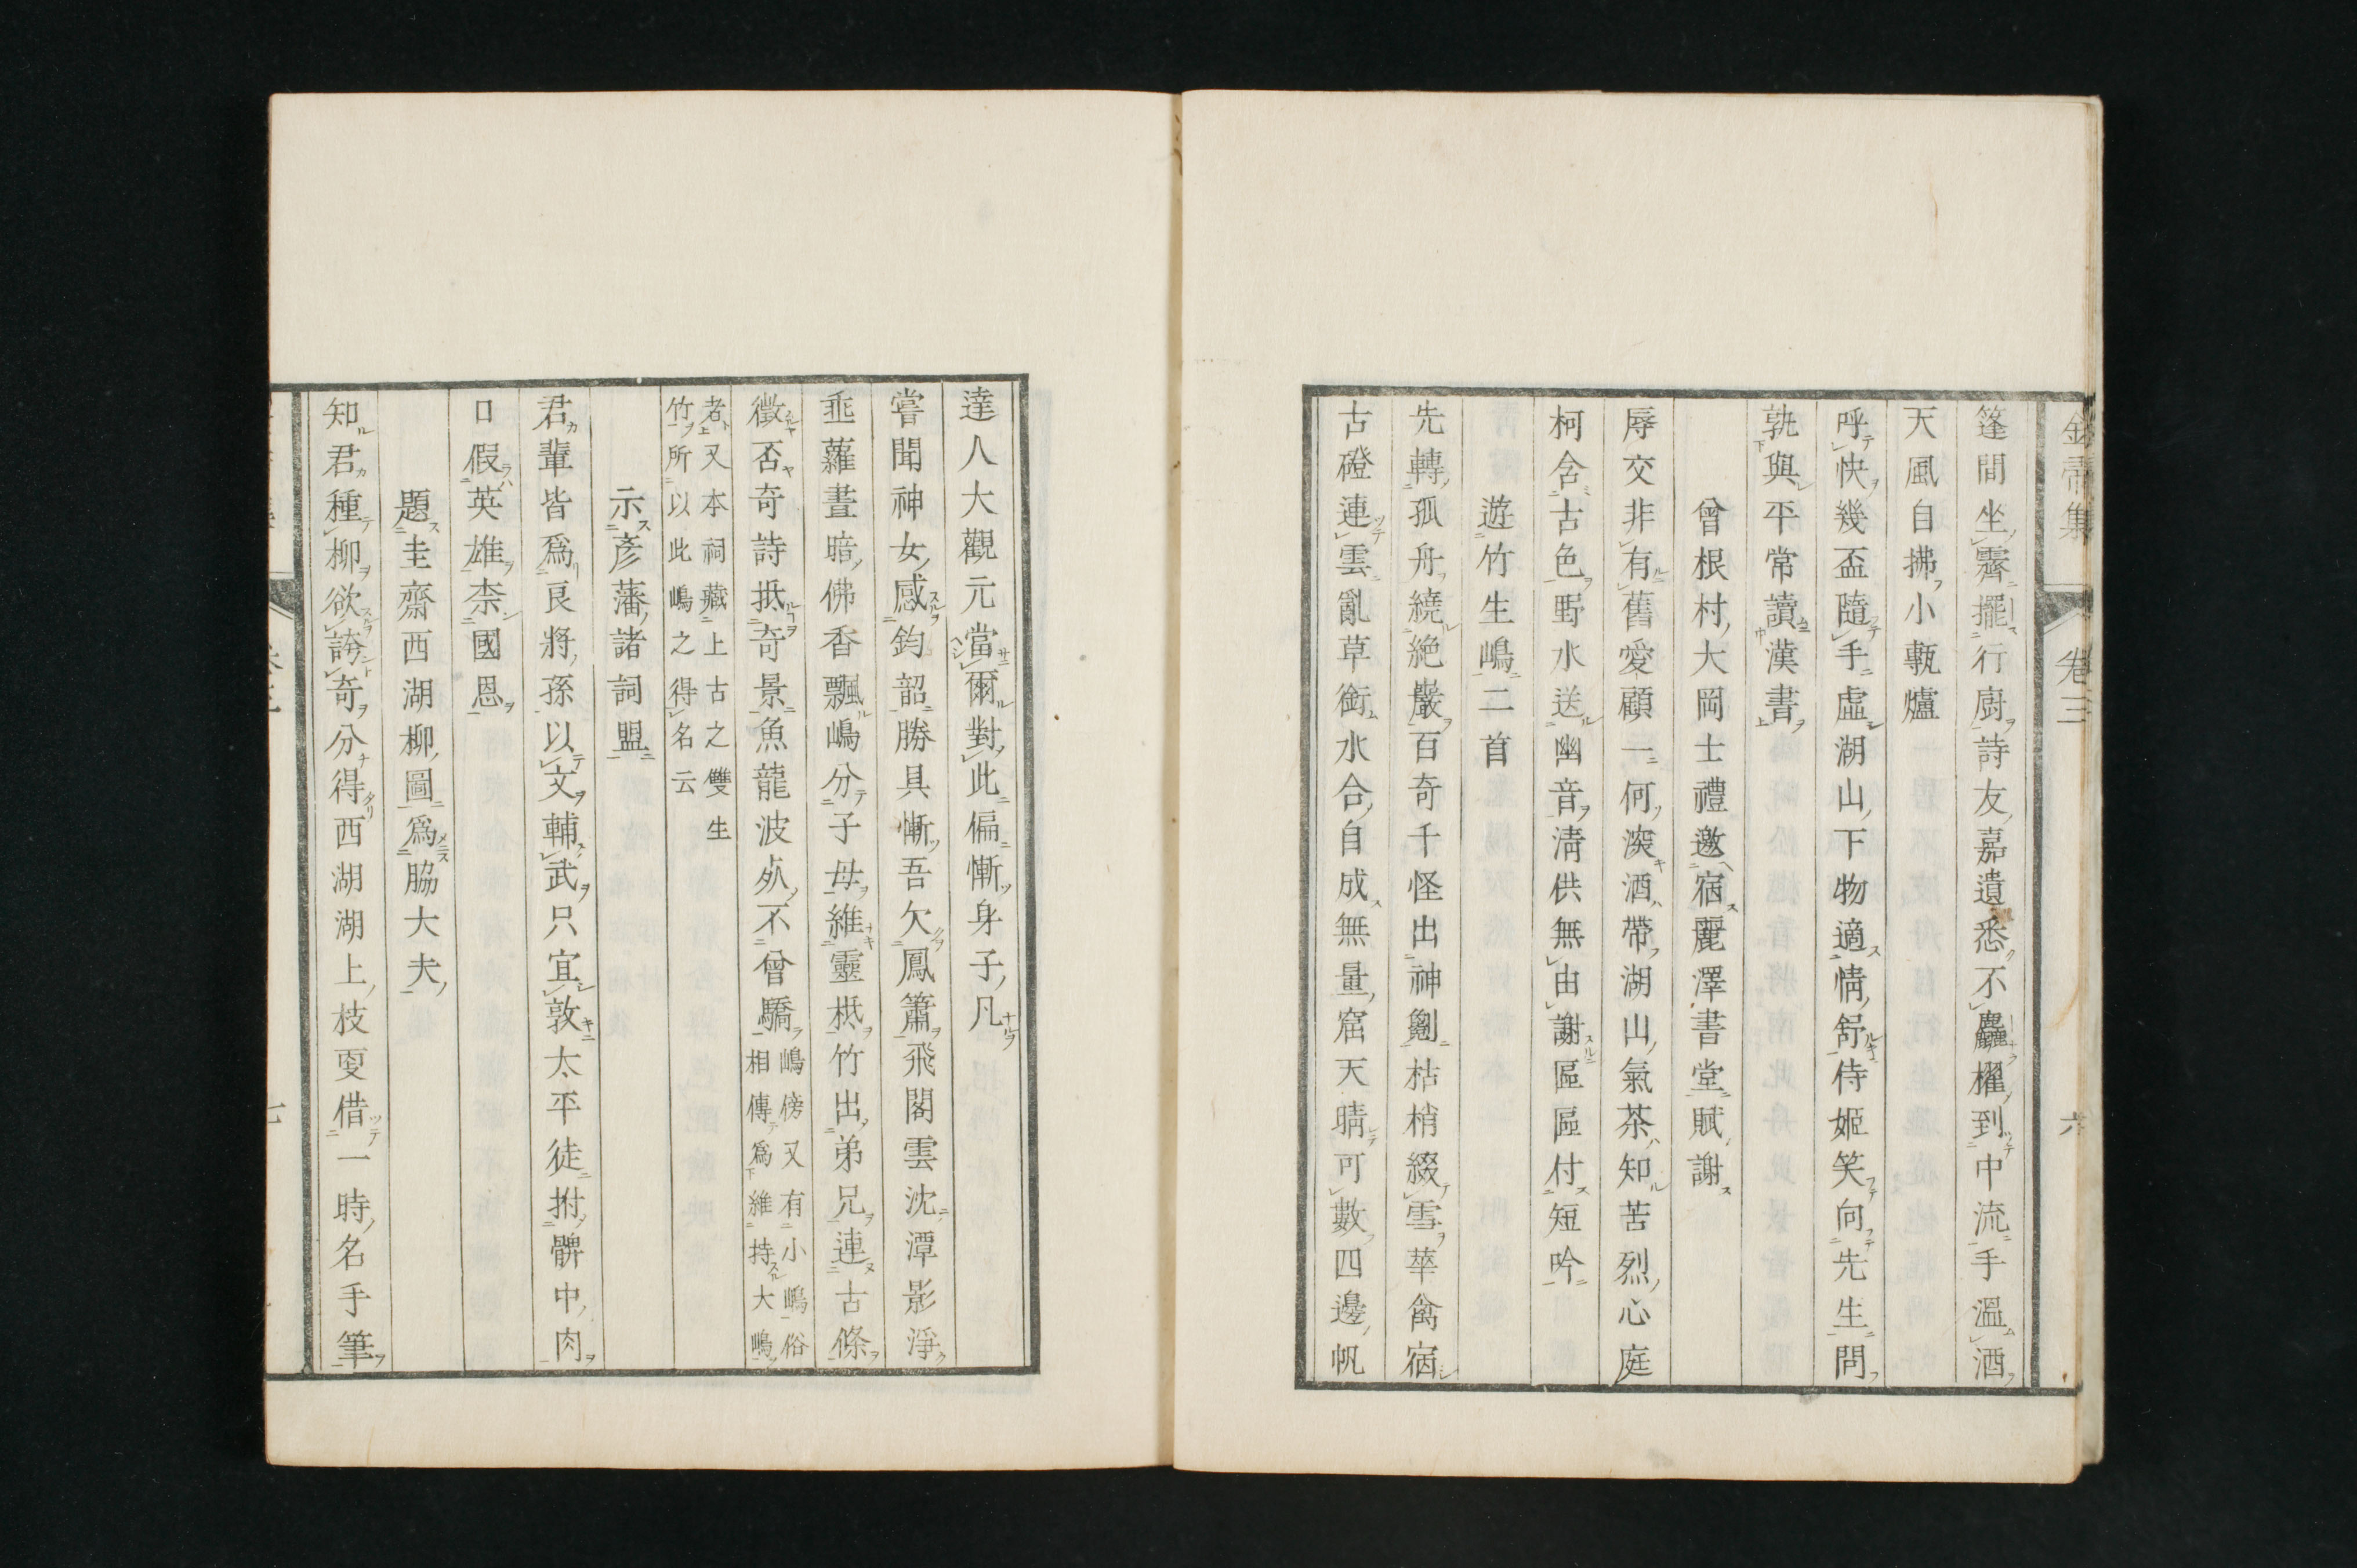 帚集 卷三 六
篷間坐霽擺行廚詩友嘉遺悉不麤櫂到中流手溫酒
天風自拂小甎爐
呼快幾盃隨手虛湖山下物適情舒侍姬笑向先生問
孰與平常讀漢書
曾根村大岡士禮邀宿麗澤書堂賦謝
辱交非有舊愛顧一何深酒帶湖山氣茶知苦烈心庭
柯含古色野水送幽音淸供無由謝區區付短吟
遊竹生嶋二首
先轉孤舟繞絶巖百奇千怪出神劖枯梢綴雪華禽宿
古磴連雲亂草銜水合自成無量窟天晴可數四邊帆
達人大觀元當爾對此偏慚身子凡
嘗聞神女感鈞韶勝具慚吾欠鳳簫飛閣雲沈潭影淨
垂蘿晝暗佛香飄嶋分子母維靈柢竹出弟兄連古條
徵否奇詩抵奇景魚龍波処不曾驕 嶋傍又有小嶋俗相傳爲維持大嶋
者又本祠藏上古之雙生竹所以此嶋之得名云
示彥藩諸詞盟
君輩皆爲良將孫以文輔武只宜敦太平徒拊髀中肉
口假英雄柰國恩
題圭齋西湖柳圖爲脇大夫
知君種柳欲誇奇分得西湖湖上枝更借一時名手筆